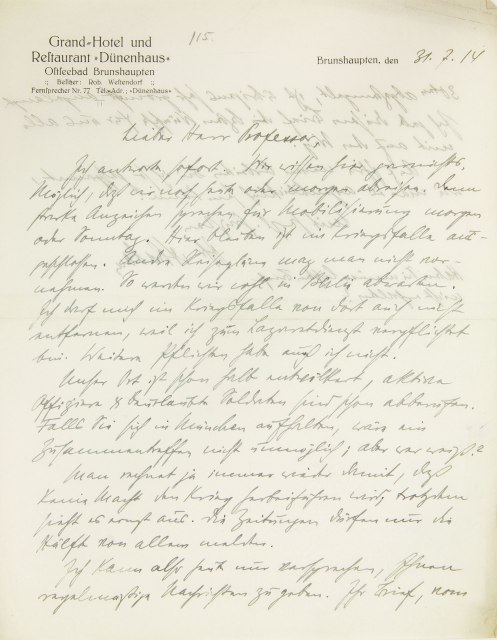 115.
Grand-Hotel und
Restaurant »Dünenhaus«
Ostseebad Brunshaupten
:: Besitzer: Rob. Westendorf ::
Fernsprecher Nr. 77 Tel.-Adr.: »Dünenhaus«
Brunshaupten, den 31. 7. 14
Lieber Herr Professor,
Ich antworte sofort. Wir wissen hier garnichts.
Möglich, daß wir noch heute oder morgen abreisen. Denn
starke Anzeichen sprechen für Mobilisierung morgen
oder Sonntag. Hier bleiben ist im Kriegsfalle aus-
geschlossen. Andre man nicht vor-
nehmen. So werden wir wohl in Berlin abwarten.
Ich darf mich im Kriegsfalle von dort auch nicht
entfernen, weil ich zum Lazarettdienst verpflichtet
bin. Weitere Pflichten habe auch ich nicht.
Unser Ort ist schon halb entvölkert, aktive
Offiziere & beurlaubte Soldaten sind schon abberufen.
Falls Sie sich in München aufhalten, wäre ein
Zusammentreffen nicht unmöglich; aber wer weiß?
Man rechnet ja immer wieder damit, daß
keine Macht den Krieg herbeiführen wird; trotzdem
sieht es ernst aus. Die Zeitungen dürfen nur die
Hälfte von allem melden.
Ich kann also heute nur versprechen, Ihnen
regelmäßige Nachrichten zu geben. Ihr Brief, vom